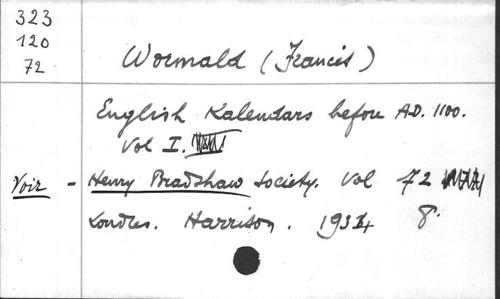 323
120
72
Wormald (Francis)
English Kalendars before A.D. 1100.
Vol I.
Voir - Henry Bradshaw Society. Vol 72
Londres. Harrison. 1934 8°.